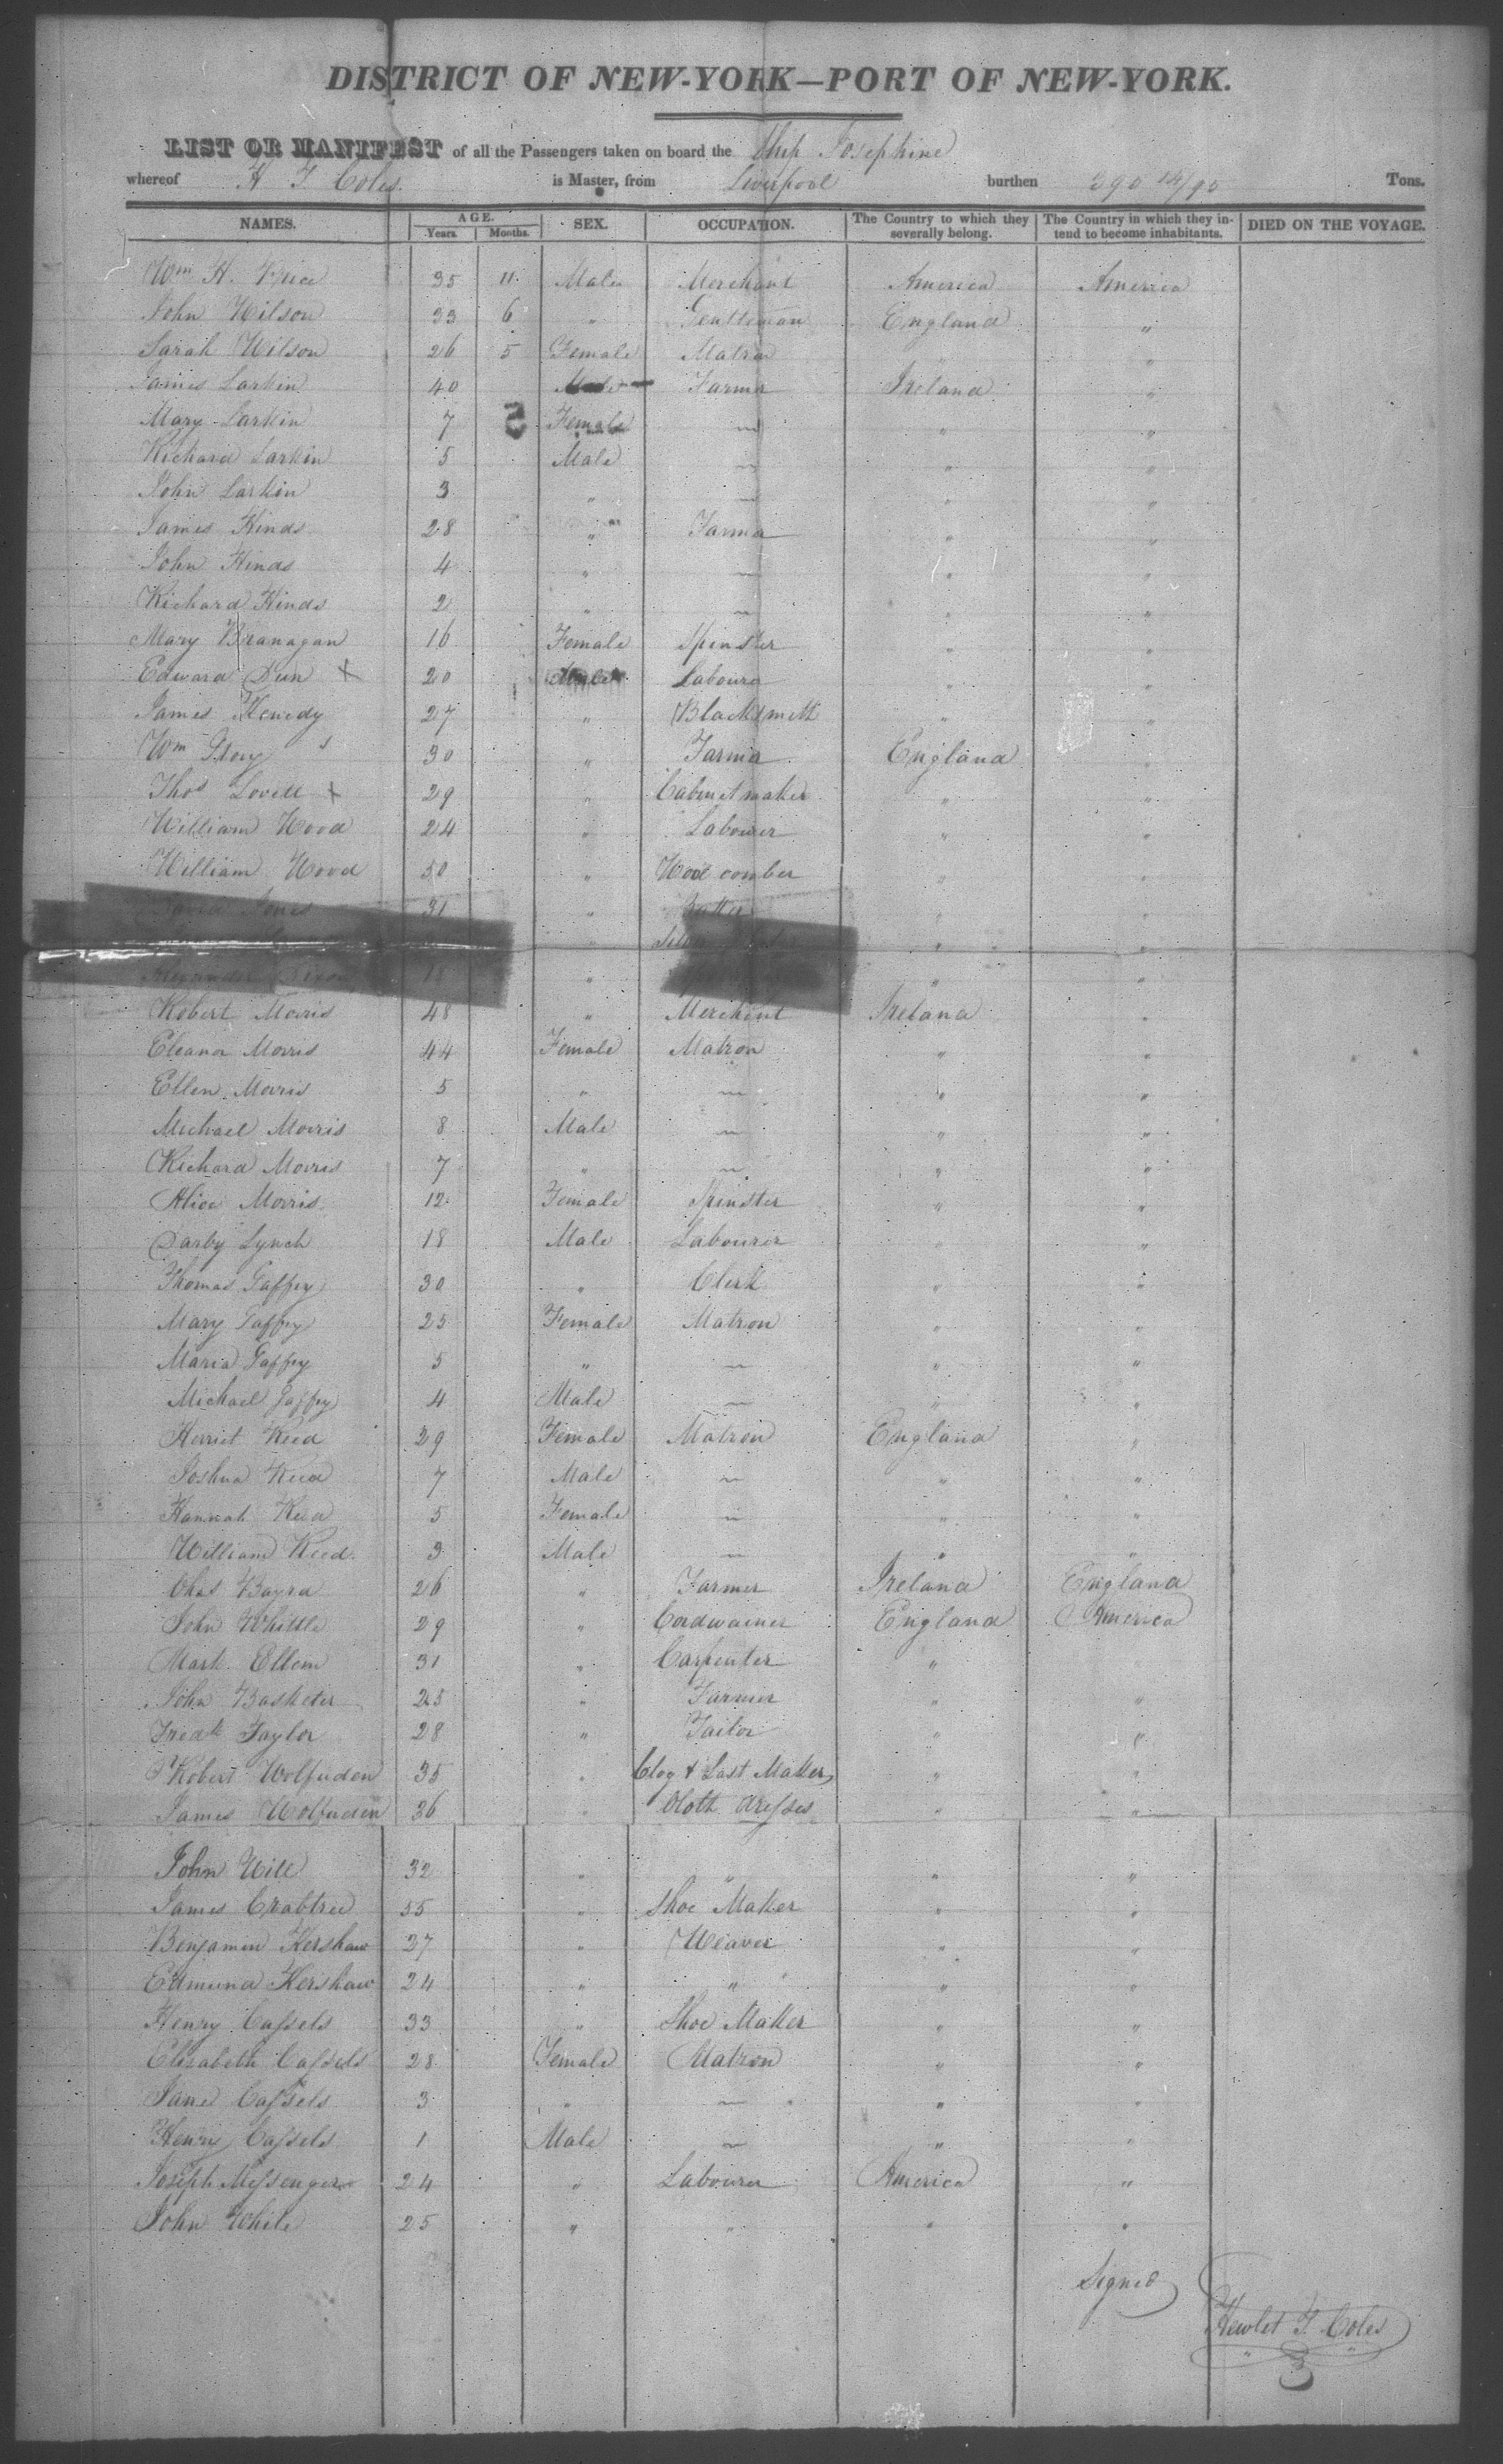 DISTRICT OF NEW-YORK—PORT OF NEW-YORK.
LIST OR MANIFEST of all the Passengers taken on board the Ship Josephine
whereof H T Coles is Master, from Liverpool burthen 390 14/95 Tons.
NAMES. AGE. Years. Months. SEX. OCCUPATION. The Country to which they severally belong. The Country in which they intend to become inhabitants. DIED ON THE VOYAGE.
Wm H. Price 35 11 Male Merchant America America
John Wilson 33 6 " Gentleman England "
Sarah Wilson 26 5 Female Matron " "
James Larkin 40 Male Farmer Ireland "
Mary Larkin 7 Female — " "
Richard Larkin 5 Male — " "
John Larkin 3 " — " "
James Hinds 28 " Farmer " "
John Hinds 4 " — " "
Richard Hinds 2 " — " "
Mary Branagan 16 Female Spinster " "
Edward Dun + 20 Male Labourer " "
James Kenedy 27 " Blacksmith " "
Wm 30 " Farmer England "
Thos Lovell + 29 " Cabinet maker " "
William Wood 24 " Labourer " "
William Wood 50 " Wool comber " "
David Jones 31 " " "
" " "
Alexander 18 " " "
Robert Morris 48 " Merchant Ireland "
Eleanor Morris 44 Female Matron " "
Ellen Morris 5 " — " "
Michael Morris 8 Male — " "
Richard Morris 7 " — " "
Alice Morris 12 Female Spinster " "
Darby Lynch 18 Male Labourer " "
Thomas Gaffey 30 " Clerk " "
Mary Gaffey 25 Female Matron " "
Maria Gaffey 5 " — " "
Michael Gaffey 4 Male — " "
Herriet Reed 29 Female Matron England "
Joshua Reed 7 Male — " "
Hannah Reed 5 Female — " "
William Reed 3 Male — " "
Chas 26 " Farmer Ireland England
John Whittle 29 " Cordwainer England America
Mark Ellem 31 " Carpenter "
John Basketer 25 " Farmer " "
Fredk Taylor 28 " Tailor " "
Robert Wolfenden 35 " Clog & Last Maker " "
James Wolfenden 36 " Cloth dresses " "
John Will 32 " " " "
James Crabtree 55 " Shoe Maker " "
Benjamin Kershaw 27 " Weaver " "
Edmund Kershaw 24 " " " "
Henry Cassels 33 " Shoe Maker " "
Elizabeth Cassels 28 Female Matron " "
Jane Cassels 3 " — " "
Henry Cassels 1 Male — " "
Joseph Messenger 24 " Labourer America "
John White 25 " " " "
Signed
Hewlet T. Coles